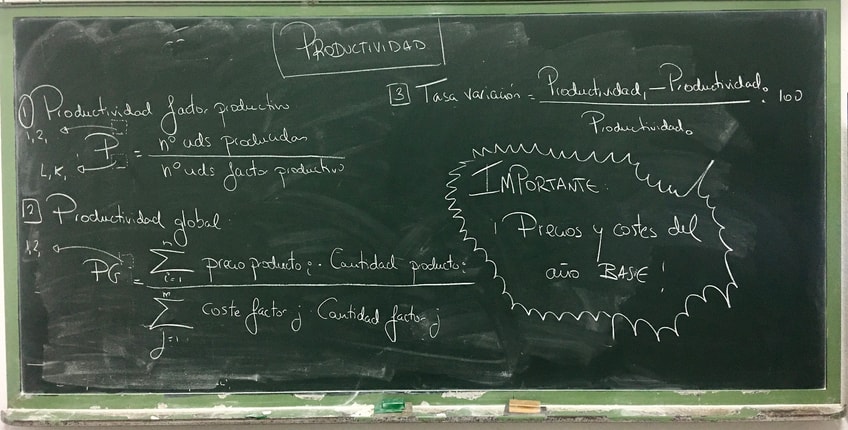 PRODUCTIVIDAD
① Productividad factor productivo
1,2,
P = nº uds producidas / nº uds factor productivo
L, K,
2 Productividad global.
1,2,
PG = ∑ⁿᵢ₌₁ precio productoᵢ · Cantidad productoᵢ / ∑ᵐⱼ₌₁ coste factor j · Cantidad factor j
3 Tasa variación = Productividad₁ − Productividad₀ / Productividad₀ · 100
IMPORTANTE:
¡ Precios y costes del
año BASE !